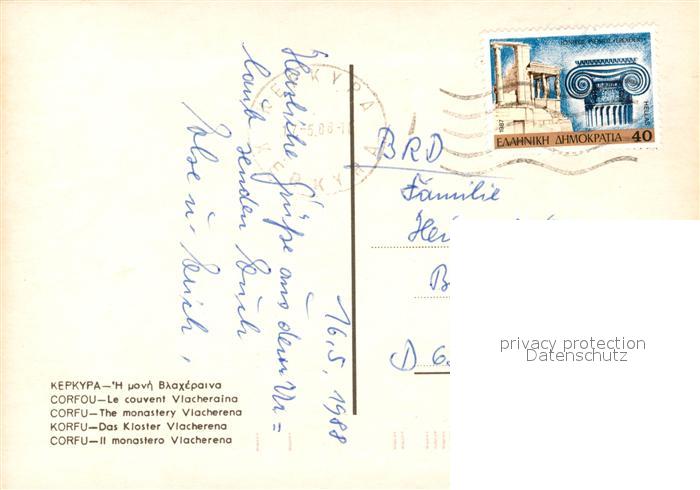 Herzliche Grüße aus dem Ur=
laub senden Euch
Ilse u. Erich,
16.5.1988
ΚΕΡΚΥΡΑ
ΚΕΡΚΥΡΑ
ΙΩΝΙΚΟΣ ΡΥΘΜΟΣ
1987
HELLAS
ΕΛΛΗΝΙΚΗ ΔΗΜΟΚΡΑΤΙΑ 40
BRD
Familie
D 6
privacy protection
Datenschutz
ΚΕΡΚΥΡΑ—Ἡ μονή Βλαχέραινα
CORFOU—Le couvent Vlacheraina
CORFU—The monastery Vlacherena
KORFU—Das Kloster Vlacherena
CORFU—Il monastero Vlacherena